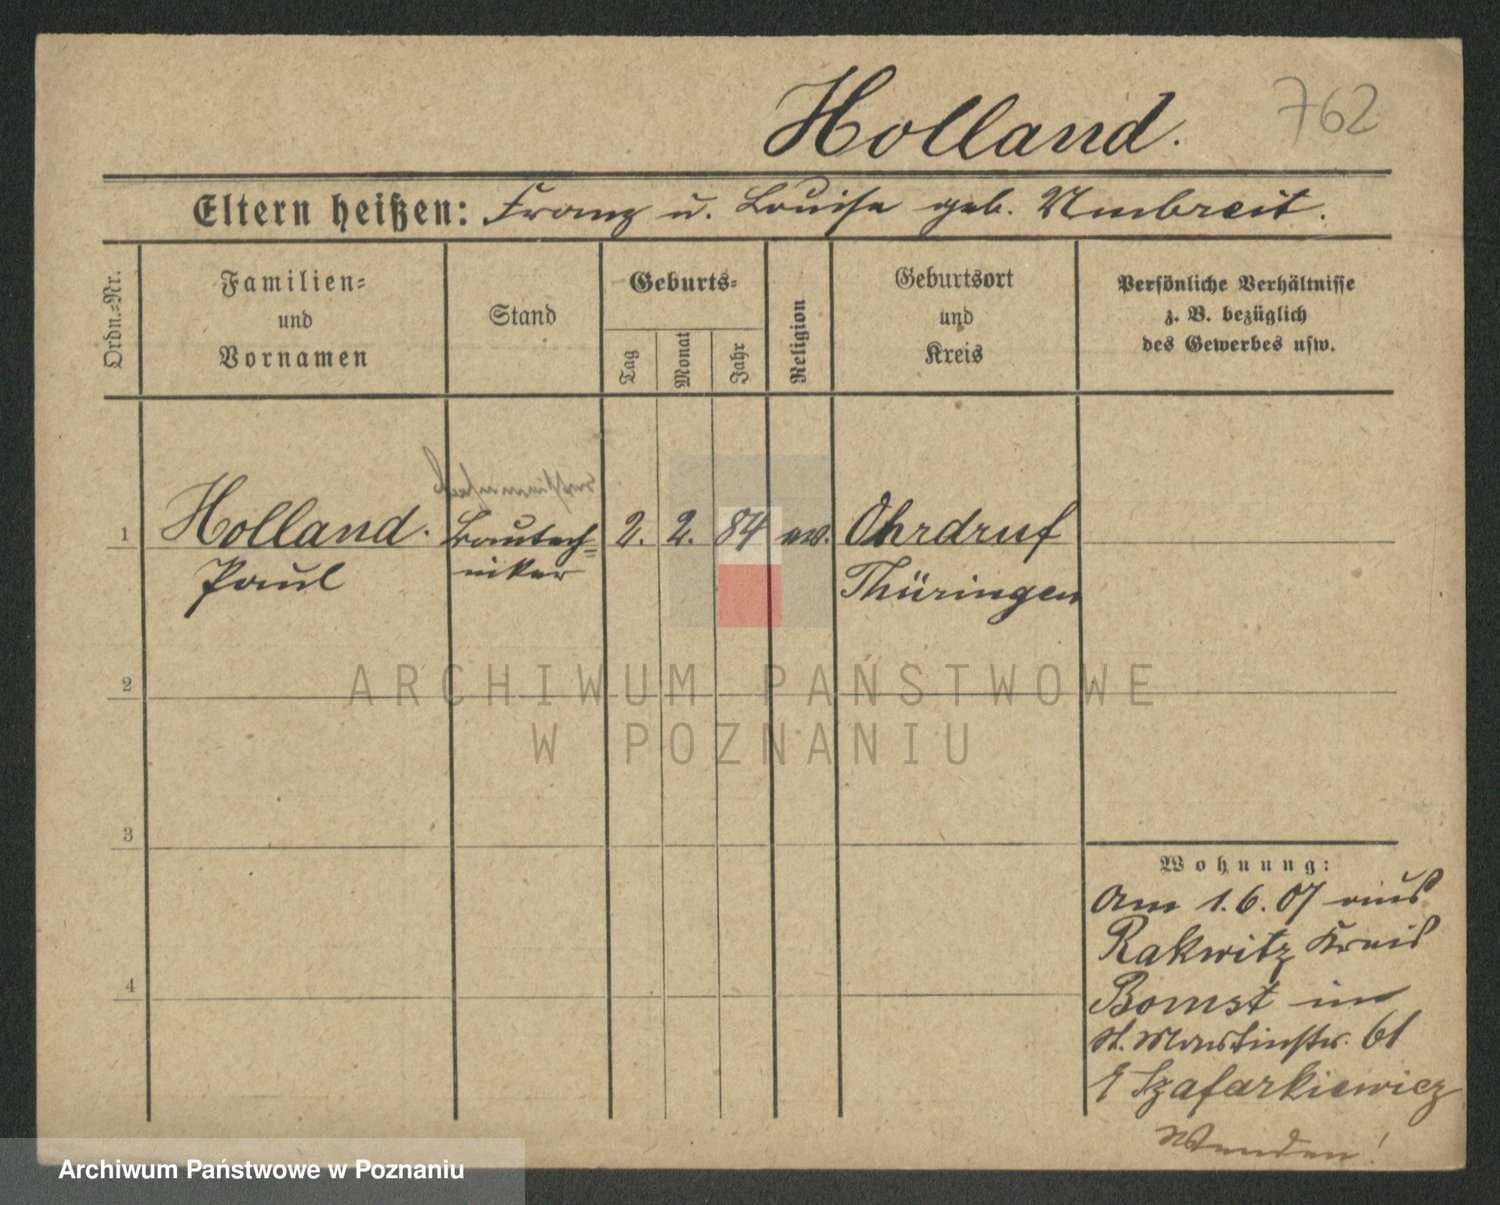 Holland. 762
Eltern heißen: Franz u. Louise geb. Umbreit.
Ordn.=Nr.
Familien=
und
Vornamen
Stand
Geburts=
Tag
Monat
Jahr
Religion
Geburtsort
und
Kreis
Persönliche Verhältnisse
z. B. bezüglich
des Gewerbes usw.
1 Holland. Bautech= 2. 2. 84 ev. Ohrdruf
Paul niker Thüringen
2
3
4
Wohnung:
Am 1.6.07 aus
Rakwitz Kreis
Bomst in
St. Martinstr. 61
Szafarkiewicz
Wenden!
ARCHIWUM PAŃSTWOWE
W POZNANIU
Archiwum Państwowe w Poznaniu